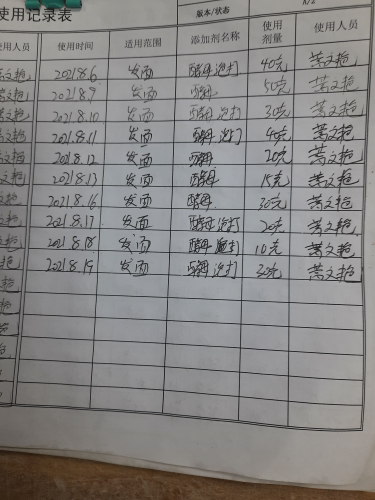 使用记录表
版本/状态 A/2
使用人员 使用时间 适用范围 添加剂名称 使用剂量 使用人员
2021.8.6 发面 酵母 泡打 40克 苦文艳
2021.8.9 发面 酵母 50克 苦文艳
2021.8.10 发面 酵母 泡打 30克 苦文艳
2021.8.11 发面 酵母 泡打 40克 苦文艳
2021.8.12 发面 酵母 20克 苦文艳
2021.8.13 发面 酵母 15克 苦文艳
2021.8.16 发面 酵母 30克 苦文艳
2021.8.17 发面 酵母 泡打 20克 苦文艳
2021.8.18 发面 酵母 泡打 10克 苦文艳
2021.8.19 发面 酵母 泡打 30克 苦文艳